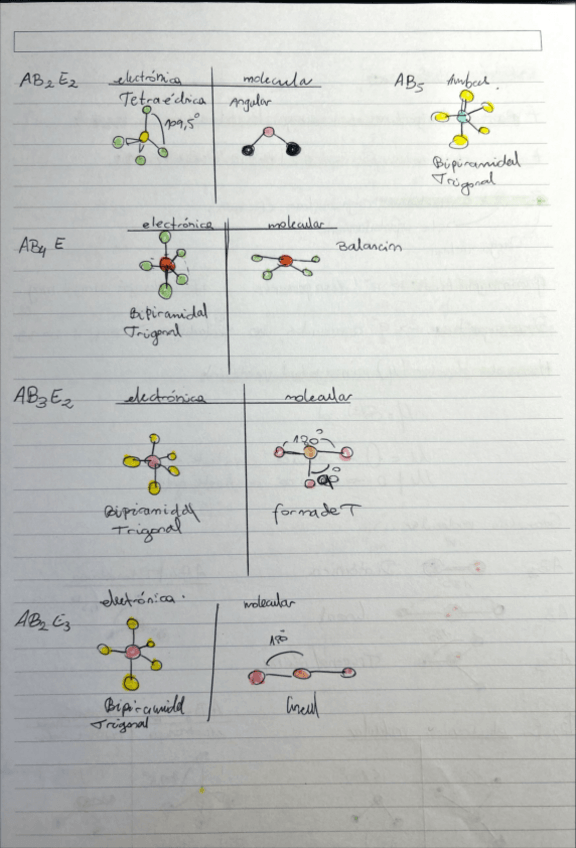 AB2 E2
electrónica
molecular
Tetraédrica
Angular
109,5°
AB5
Ambas.
Bipiramidal
Trigonal
AB4 E
electrónica
molecular
Balancin
Bipiramidal
Trigonal
AB3 E2
electrónica
molecular
Bipiramidal
Trigonal
forma de T
AB2 E3
electrónica.
molecular
180°
Bipiramidal
Trigonal
lineal